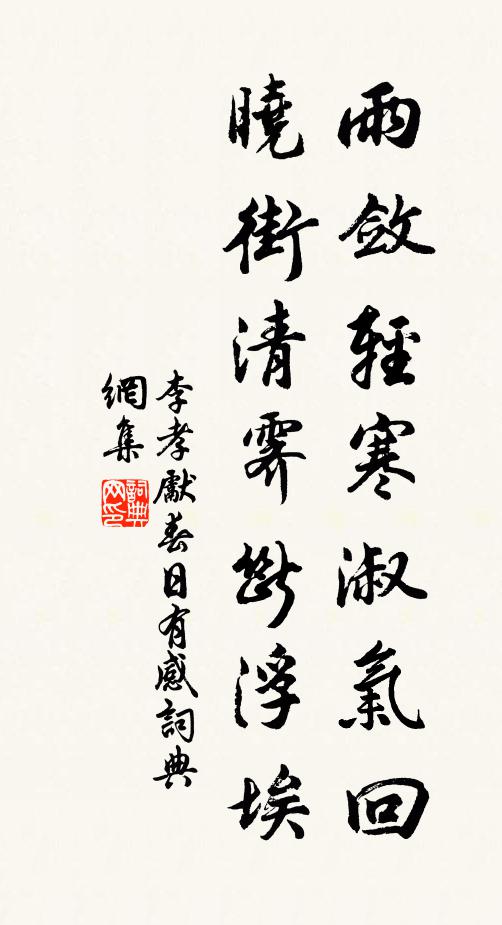 雨斂輕寒淑氣回
曉街清霽斷浮埃
李孝獻春日有感詞典
網集
詞典網印